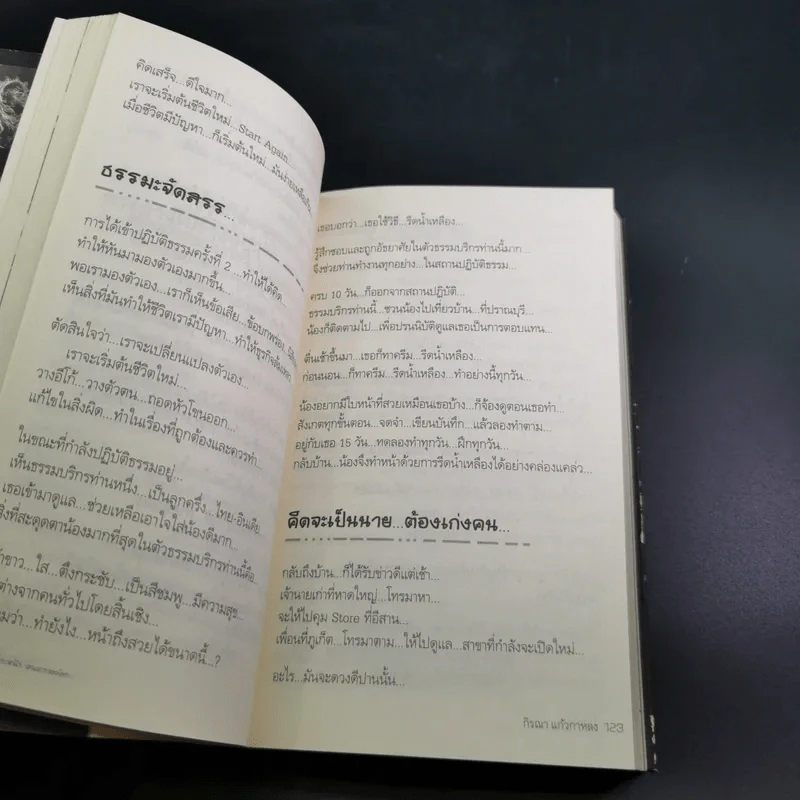 คิดเสร็จ...ดีใจมาก...
เราจะเริ่มต้นชีวิตใหม่...Start Again...
เมื่อชีวิตมีปัญหา...ก็เริ่มต้นใหม่...มันง่ายเหลือเกิน
ธรรมะจัดสรร...
การได้เข้าปฏิบัติธรรมครั้งที่ 2...ทำให้ได้คิด...
ทำให้หันมามองตัวเองมากขึ้น...
พอเรามองตัวเอง...เราก็เห็นข้อเสีย...ข้อบกพร่อง
เห็นสิ่งที่มันทำให้ชีวิตเรามีปัญหา...ทำให้ธุรกิจ
ตัดสินใจว่า...เราจะเปลี่ยนแปลงตัวเอง...
เราจะเริ่มต้นชีวิตใหม่...
วางอีโก้...วางตัวตน...ถอดหัวโขนออก...
แก้ไขในสิ่งผิด...ทำในเรื่องที่ถูกต้องและควรทำ...
ในขณะที่กำลังปฏิบัติธรรมอยู่...
เห็นธรรมบริกรท่านหนึ่ง...เป็นลูกครึ่ง...ไทย-อินเดีย
เธอเข้ามาดูแล...ช่วยเหลือเอาใจใส่น้องดีมาก...
สิ่งที่สะดุดตาน้องมากที่สุดในตัวธรรมบริกรท่านนี้คือ...
ขาว...ใส...ตึงกระชับ...เป็นสีชมพู...มีความสุข...
ต่างจากคนทั่วไปโดยสิ้นเชิง...
ว่า...ทำยังไง...หน้าถึงสวยได้ขนาดนี้...?
เธอบอกว่า...เธอใช้วิธี...รีดน้ำเหลือง...
รู้สึกชอบและถูกอัธยาศัยในตัวธรรมบริกรท่านนี้มาก...
จึงช่วยท่านทำงานทุกอย่าง...ในสถานปฏิบัติธรรม...
ครบ 10 วัน...ก็ออกจากสถานปฏิบัติ...
ธรรมบริกรท่านนี้...ชวนน้องไปเที่ยวบ้าน...ที่ปราณบุรี...
น้องก็ติดตามไป...เพื่อปรนนิบัติดูแลเธอเป็นการตอบแทน...
ตื่นเช้าขึ้นมา...เธอก็ทาครีม...รีดน้ำเหลือง...
ก่อนนอน...ก็ทาครีม...รีดน้ำเหลือง...ทำอย่างนี้ทุกวัน...
น้องอยากมีใบหน้าที่สวยเหมือนเธอบ้าง...ก็จ้องดูตอนเธอทำ...
สังเกตทุกขั้นตอน...จดจำ...เขียนบันทึก...แล้วลองทำตาม...
อยู่กับเธอ 15 วัน...ทดลองทำทุกวัน...ฝึกทุกวัน...
กลับบ้าน...น้องจึงทำหน้าด้วยการรีดน้ำเหลืองได้อย่างคล่องแคล่ว...
คิดจะเป็นนาย...ต้องเก่งคน...
กลับถึงบ้าน...ก็ได้รับข่าวดีแต่เช้า...
เจ้านายเก่าที่หาดใหญ่...โทรมาหา...
จะให้ไปคุม Store ที่อีสาน...
เพื่อนที่ภูเก็ต...โทรมาตาม...ให้ไปดูแล...สาขาที่กำลังจะเปิดใหม่...
อะไร...มันจะดวงดีปานนั้น...
ภิรณา แก้วกาหลง 123